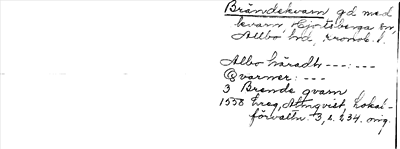 Brändekvarn gd med
kvarn Hjortsberga sn,
Allbo hd, Kronob. l.
Albo häradh ---:---
Qvarner: ---
3 Brende qvarn
1558 Breg, Almqvist, Lokal-
förvaltn. 3, s. 234. orig.